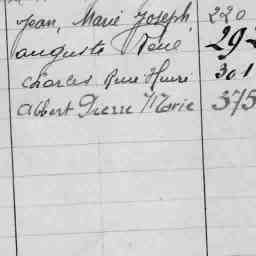 Jean, Marie Joseph, 220
Auguste René 292
Charles René Henri 301
Albert Pierre Marie 375